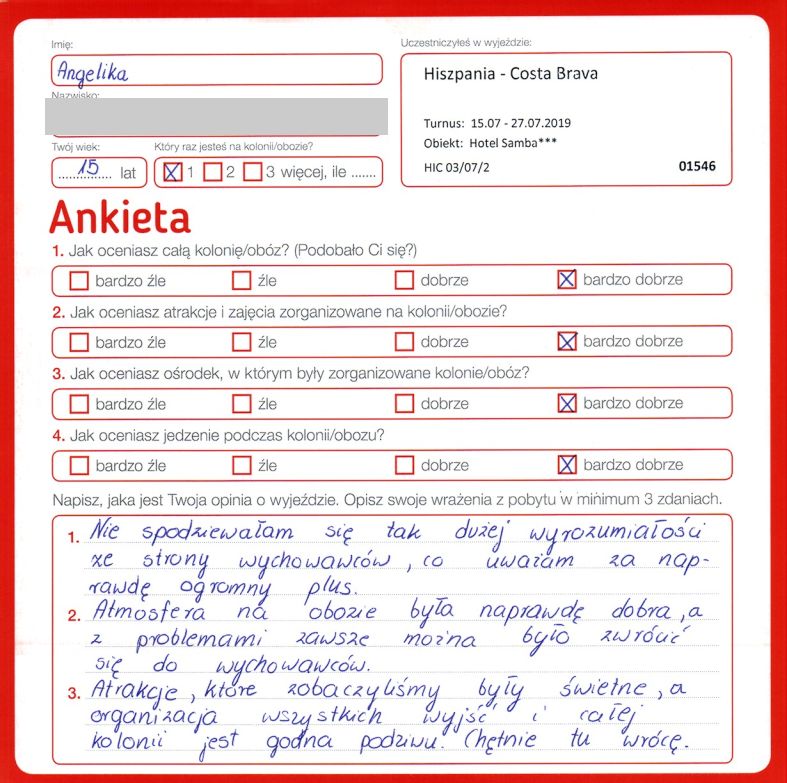 Imię:
Uczestniczyłeś w wyjeździe:
Angelika
Hiszpania - Costa Brava
Nazwisko:
Turnus: 15.07 - 27.07.2019
Obiekt: Hotel Samba***
HIC 03/07/2 01546
Twój wiek: Który raz jesteś na kolonii/obozie?
15 lat 1 2 3 więcej, ile .......
Ankieta
1. Jak oceniasz całą kolonię/obóz? (Podobało Ci się?)
bardzo źle źle dobrze bardzo dobrze
2. Jak oceniasz atrakcje i zajęcia zorganizowane na kolonii/obozie?
bardzo źle źle dobrze bardzo dobrze
3. Jak oceniasz ośrodek, w którym były zorganizowane kolonie/obóz?
bardzo źle źle dobrze bardzo dobrze
4. Jak oceniasz jedzenie podczas kolonii/obozu?
bardzo źle źle dobrze bardzo dobrze
Napisz, jaka jest Twoja opinia o wyjeździe. Opisz swoje wrażenia z pobytu w minimum 3 zdaniach.
1. Nie spodziewałam się tak dużej wyrozumiałości
ze strony wychowawców, co uważam za nap-
rawdę ogromny plus.
2. Atmosfera na obozie była naprawdę dobra, a
z problemami zawsze można było zwrócić
się do wychowawców.
3. Atrakcje, które zobaczyliśmy były świetne, a
organizacja wszystkich wyjść i całej
kolonii jest godna podziwu. Chętnie tu wrócę.